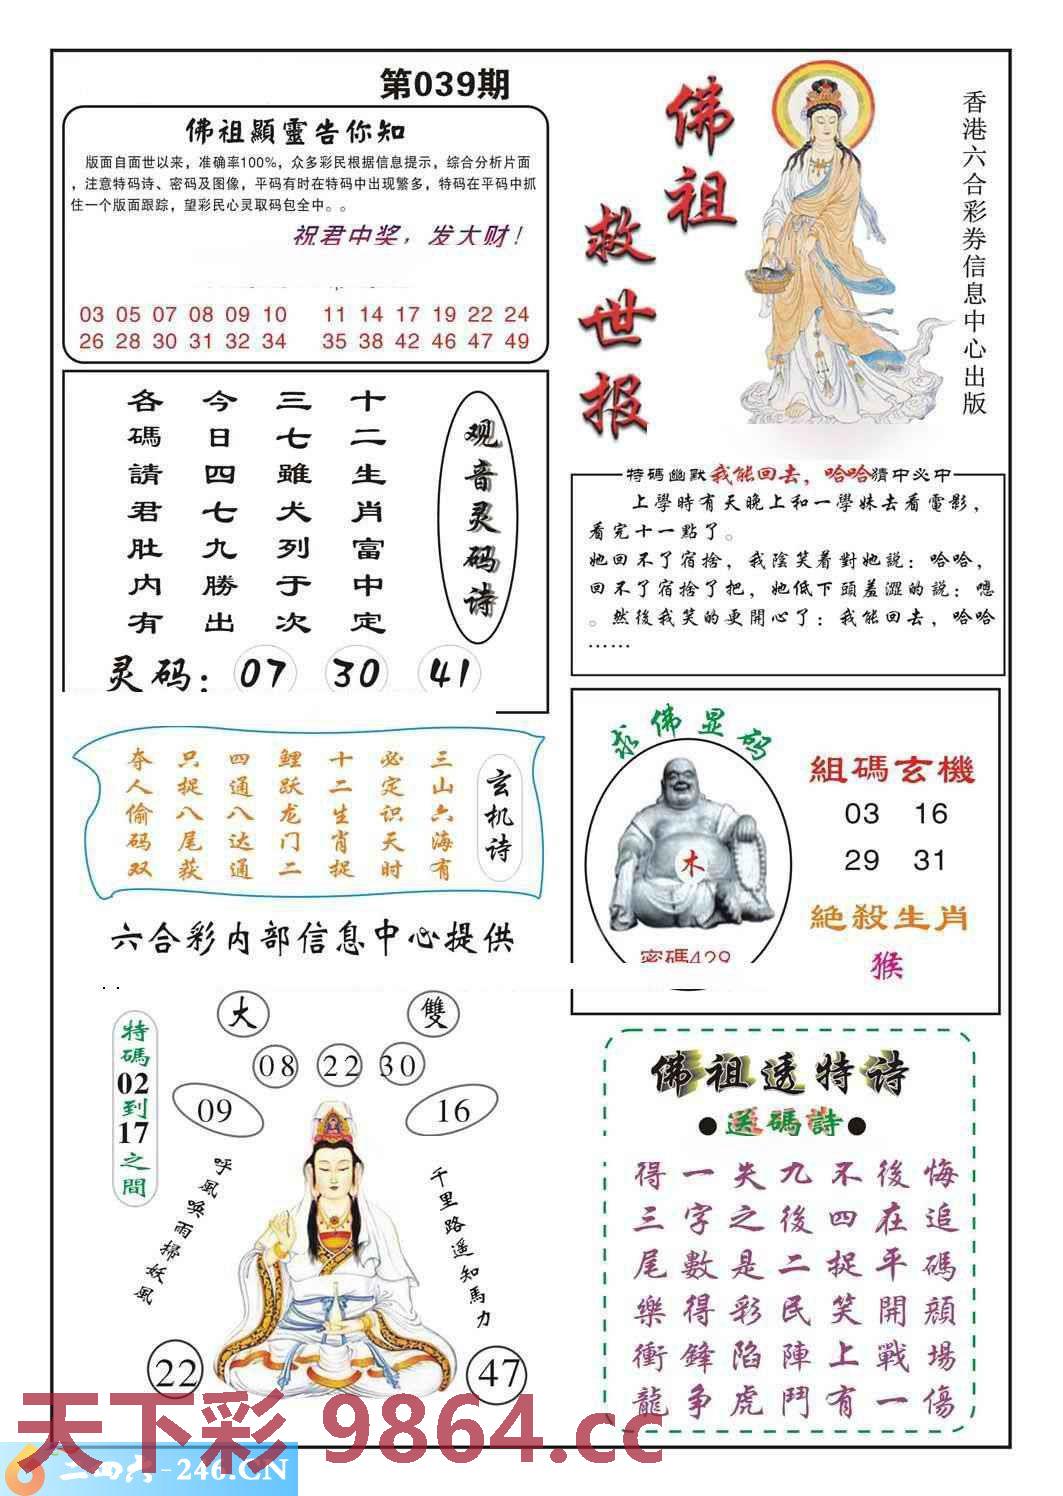 第039期
佛祖顯靈告你知
版面自面世以来，准确率100%，众多彩民根据信息提示，综合分析片面
，注意特码诗、密码及图像，平码有时在特码中出现繁多，特码在平码中抓
住一个版面跟踪，望彩民心灵取码包全中。。
祝君中奖，发大财！
03 05 07 08 09 10 11 14 17 19 22 24
26 28 30 31 32 34 35 38 42 46 47 49
佛祖
救世报
香港六合彩券信息中心出版
观音灵码诗
十二生肖富中定
三七雖犬列于次
今日四七九勝出
各碼請君肚内有
灵码：07 30 41
特碼幽默我能回去，哈哈猜中必中
上學時有天晚上和一學妹去看電影，
看完十一點了。
她回不了宿捨，我陰笑着對她説：哈哈，
回不了宿捨了把，她低下頭羞澀的説：嗯
。然後我笑的更開心了：我能回去，哈哈
……
玄机诗
三山六海有
必定识天时
十二生肖捉
鲤跃龙门二
四通八达通
只捉八尾获
夺人偷码双
六合彩内部信息中心提供
求佛显码
木
密碼429
組碼玄機
03 16
29 31
絕殺生肖
猴
特碼02到17之間
大 雙
08 22 30
09 16
呼風喚雨掃妖風
千里路遥知馬力
22 47
佛祖透特诗
●送碼詩●
得一失九不後悔
三字之後四在追
尾數是二捉平碼
樂得彩民笑開顔
衝鋒陷陣上戰場
龍争虎鬥有一傷
天下彩 9864.cc
二四六-246.CN